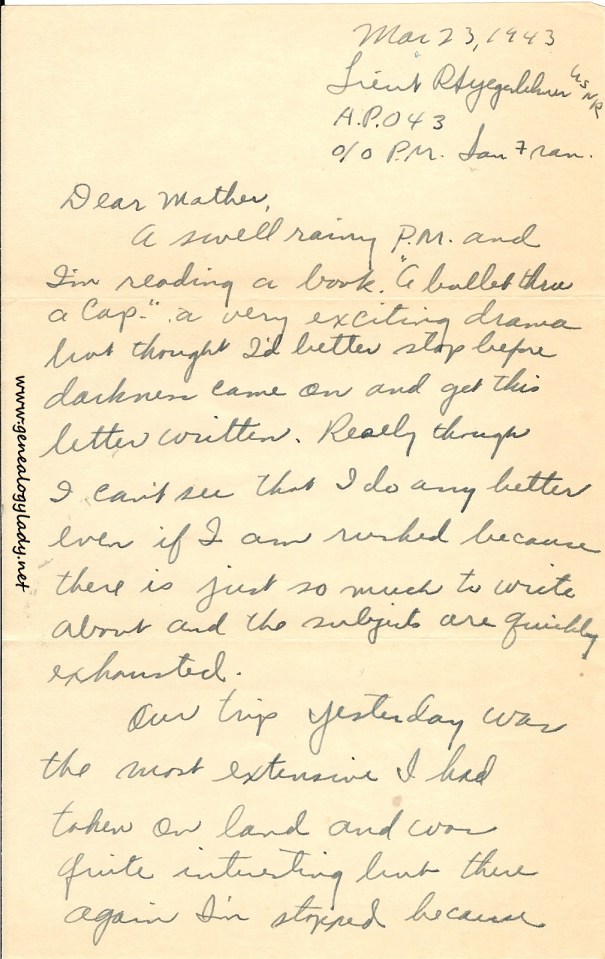 Mar 23, 1943
Lieut R H Yegerlehner USNR
A.P.O 43
c/o P.M. San Fran.
Dear Mother,
A swell rainy P.M. and
I'm reading a book. "A bullet thru
a Cap-". a very exciting drama
but thought I'd better stop before
darkness came on and get this
letter written. Really though
I can't see that I do any better
even if I am rushed because
there is just so much to write
about and the subjects are quickly
exhausted.
Our trip yesterday was
the most extensive I had
taken on land and was
quite interesting but there
again I'm stopped because
www.genealogylady.net